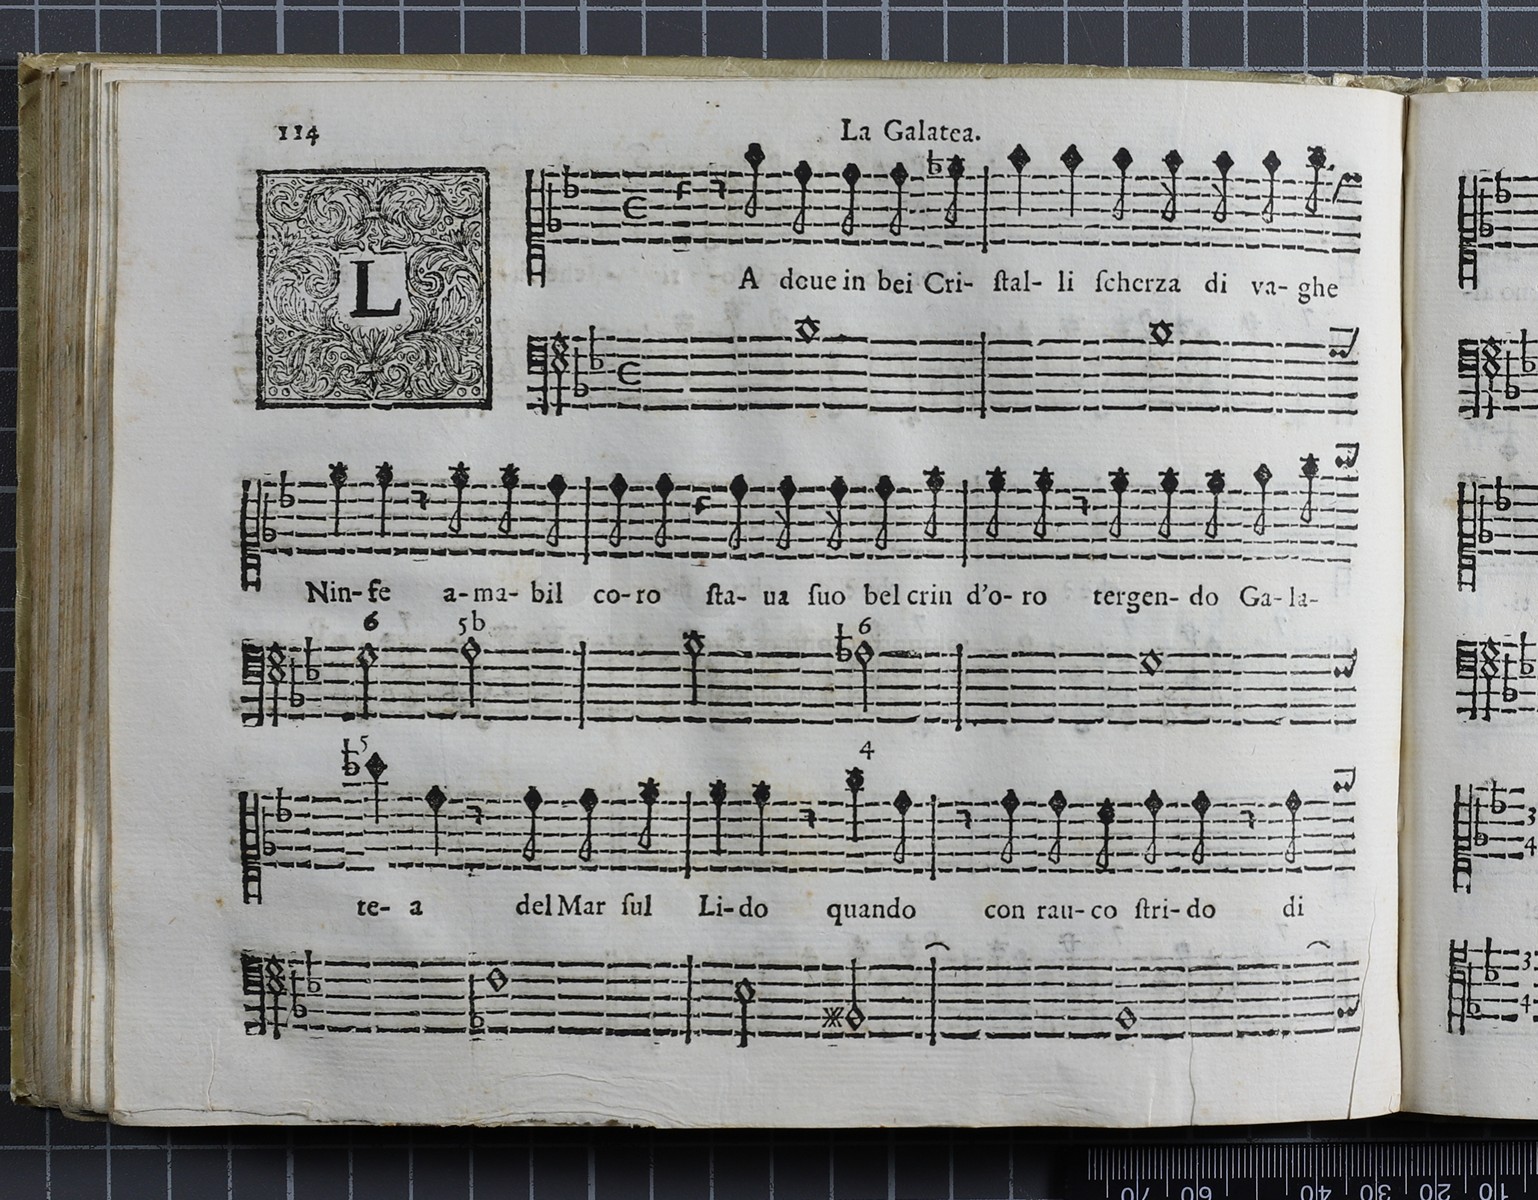 114
La Galatea.
L
A doue in bei Cri- ſtal- li ſcherza di va- ghe
Nin- fe a- ma- bil co- ro ſta- ua ſuo bel crin d'o- ro tergen- do Ga- la-
6 5b 6
5 4
te- a del Mar ſul Li- do quando con rau- co ſtri- do di
3
4
3
4
70 60 40 30 20 10